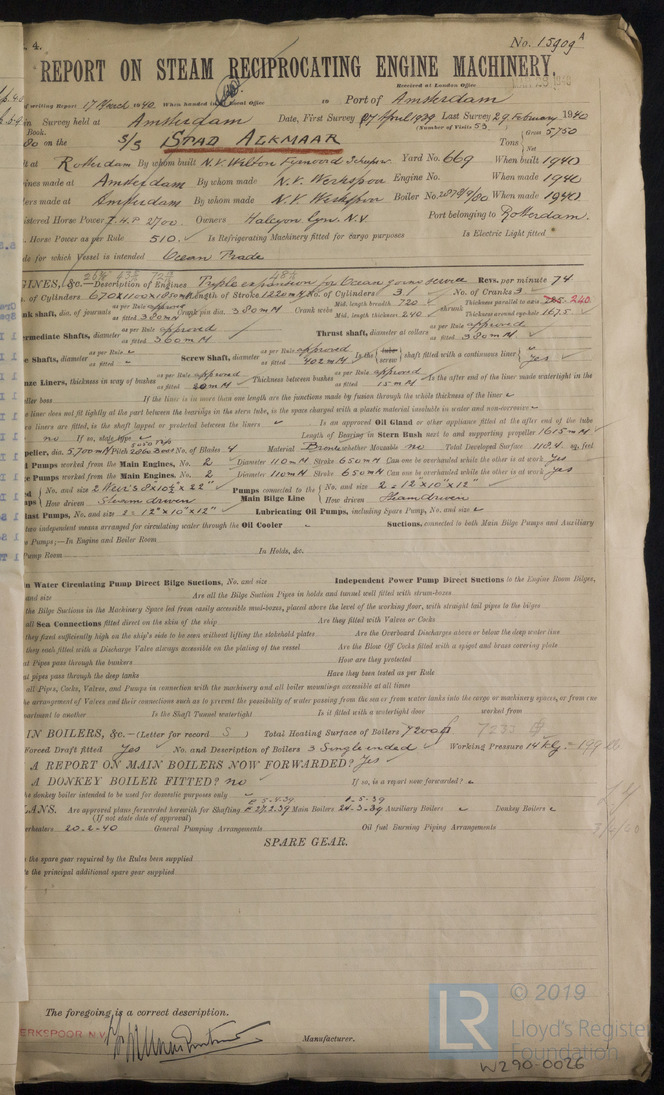 4.
No. 15909 A
REPORT ON STEAM RECIPROCATING ENGINE MACHINERY.
Received at London Office
writing Report 17 March 1940 When handed in at Local Office 19 Port of Amsterdam
in Survey held at Amsterdam Date, First Survey 17 April 1939 Last Survey 29 February 1940
Book. (Number of Visits 53
80 on the S/S STAD ALKMAAR Tons Gross 5750 Net
t at Rotterdam By whom built N.V. Wilton Fijenoord Yard No. 669 When built 1940
ines made at Amsterdam By whom made N.V. Werkspoor Engine No. When made 1940
ers made at Amsterdam By whom made N.V. Werkspoor Boiler No. When made 1940
istered Horse Power I.H.P. 2700. Owners Halcyon Lyn. N.V. Port belonging to Rotterdam.
Horse Power as per Rule 510. Is Refrigerating Machinery fitted for cargo purposes Is Electric Light fitted
de for which Vessel is intended Ocean Trade
GINES, &c.—Description of Engines Triple expansion for Ocean going service Revs. per minute 74
of Cylinders 670x1100x1850mm Length of Stroke 1220mm No. of Cylinders 3 No. of Cranks 3
nk shaft, dia. of journals as per Rule approved as fitted 380mm Crank pin dia. 380mm Crank webs Mid. length breadth 720 Mid. length thickness 240 shrunk Thickness parallel to axis 240 Thickness around eye-hole 167.5
ermediate Shafts, diameter as per Rule approved as fitted 360mm Thrust shaft, diameter at collars as per Rule approved as fitted 380mm
e Shafts, diameter as per Rule as fitted Screw Shaft, diameter as per Rule approved as fitted 402mm Is the tube screw shaft fitted with a continuous liner Yes
nze Liners, thickness in way of bushes as per Rule approved as fitted 20mm Thickness between bushes as per Rule approved as fitted 15mm Is the after end of the liner made watertight in the
ller boss If the liner is in more than one length are the junctions made by fusion through the whole thickness of the liner
e liner does not fit tightly at the part between the bearings in the stern tube, is the space charged with a plastic material insoluble in water and non-corrosive
o liners are fitted, is the shaft lapped or protected between the liners Is an approved Oil Gland or other appliance fitted at the after end of the tube
no If so, state type Length of Bearing in Stern Bush next to and supporting propeller 1615mm
peller, dia. 5.700mm Pitch No. of Blades 4 Material Bronze whether Moveable no Total Developed Surface 118.4 sq. feet
d Pumps worked from the Main Engines, No. 2 Diameter 110mm Stroke 650mm Can one be overhauled while the other is at work Yes
e Pumps worked from the Main Engines, No. 2 Diameter 110mm Stroke 650mm Can one be overhauled while the other is at work Yes
No. and size How driven Steam driven Pumps connected to the Main Bilge Line No. and size 2 = 12"x10"x12" How driven Steam driven
last Pumps, No. and size 2 = 12"x10"x12" Lubricating Oil Pumps, including Spare Pump, No. and size
two independent means arranged for circulating water through the Oil Cooler Suctions, connected to both Main Bilge Pumps and Auxiliary
e Pumps;—In Engine and Boiler Room
Pump Room In Holds, &c.
n Water Circulating Pump Direct Bilge Suctions, No. and size Independent Power Pump Direct Suctions to the Engine Room Bilges,
and size Are all the Bilge Suction Pipes in holds and tunnel well fitted with strum-boxes
the Bilge Suctions in the Machinery Space led from easily accessible mud-boxes, placed above the level of the working floor, with straight tail pipes to the bilges
all Sea Connections fitted direct on the skin of the ship Are they fitted with Valves or Cocks
they fixed sufficiently high on the ship's side to be seen without lifting the stokehold plates Are the Overboard Discharges above or below the deep water line
they each fitted with a Discharge Valve always accessible on the plating of the vessel Are the Blow Off Cocks fitted with a spigot and brass covering plate
at Pipes pass through the bunkers How are they protected
at pipes pass through the deep tanks Have they been tested as per Rule
all Pipes, Cocks, Valves, and Pumps in connection with the machinery and all boiler mountings accessible at all times
he arrangement of Valves and their connections such as to prevent the possibility of water passing from the sea or from water tanks into the cargo or machinery spaces, or from one
partment to another Is the Shaft Tunnel watertight Is it fitted with a watertight door worked from
IN BOILERS, &c.—(Letter for record S ) Total Heating Surface of Boilers 7233
Forced Draft fitted Yes No. and Description of Boilers 3 Single ended Working Pressure 14 Kg.
A REPORT ON MAIN BOILERS NOW FORWARDED? Yes
A DONKEY BOILER FITTED? no If so, is a report now forwarded?
he donkey boiler intended to be used for domestic purposes only
ANS. Are approved plans forwarded herewith for Shafting 27.2.39 Main Boilers 24-3-39 Auxiliary Boilers Donkey Boilers
(If not state date of approval)
erheaters 20-2-40 General Pumping Arrangements Oil fuel Burning Piping Arrangements
SPARE GEAR.
the spare gear required by the Rules been supplied
e the principal additional spare gear supplied
The foregoing is a correct description.
ERKSPOOR, N.V.
Manufacturer.
LR
© 2019
Lloyd's Register
Foundation
W290-0026